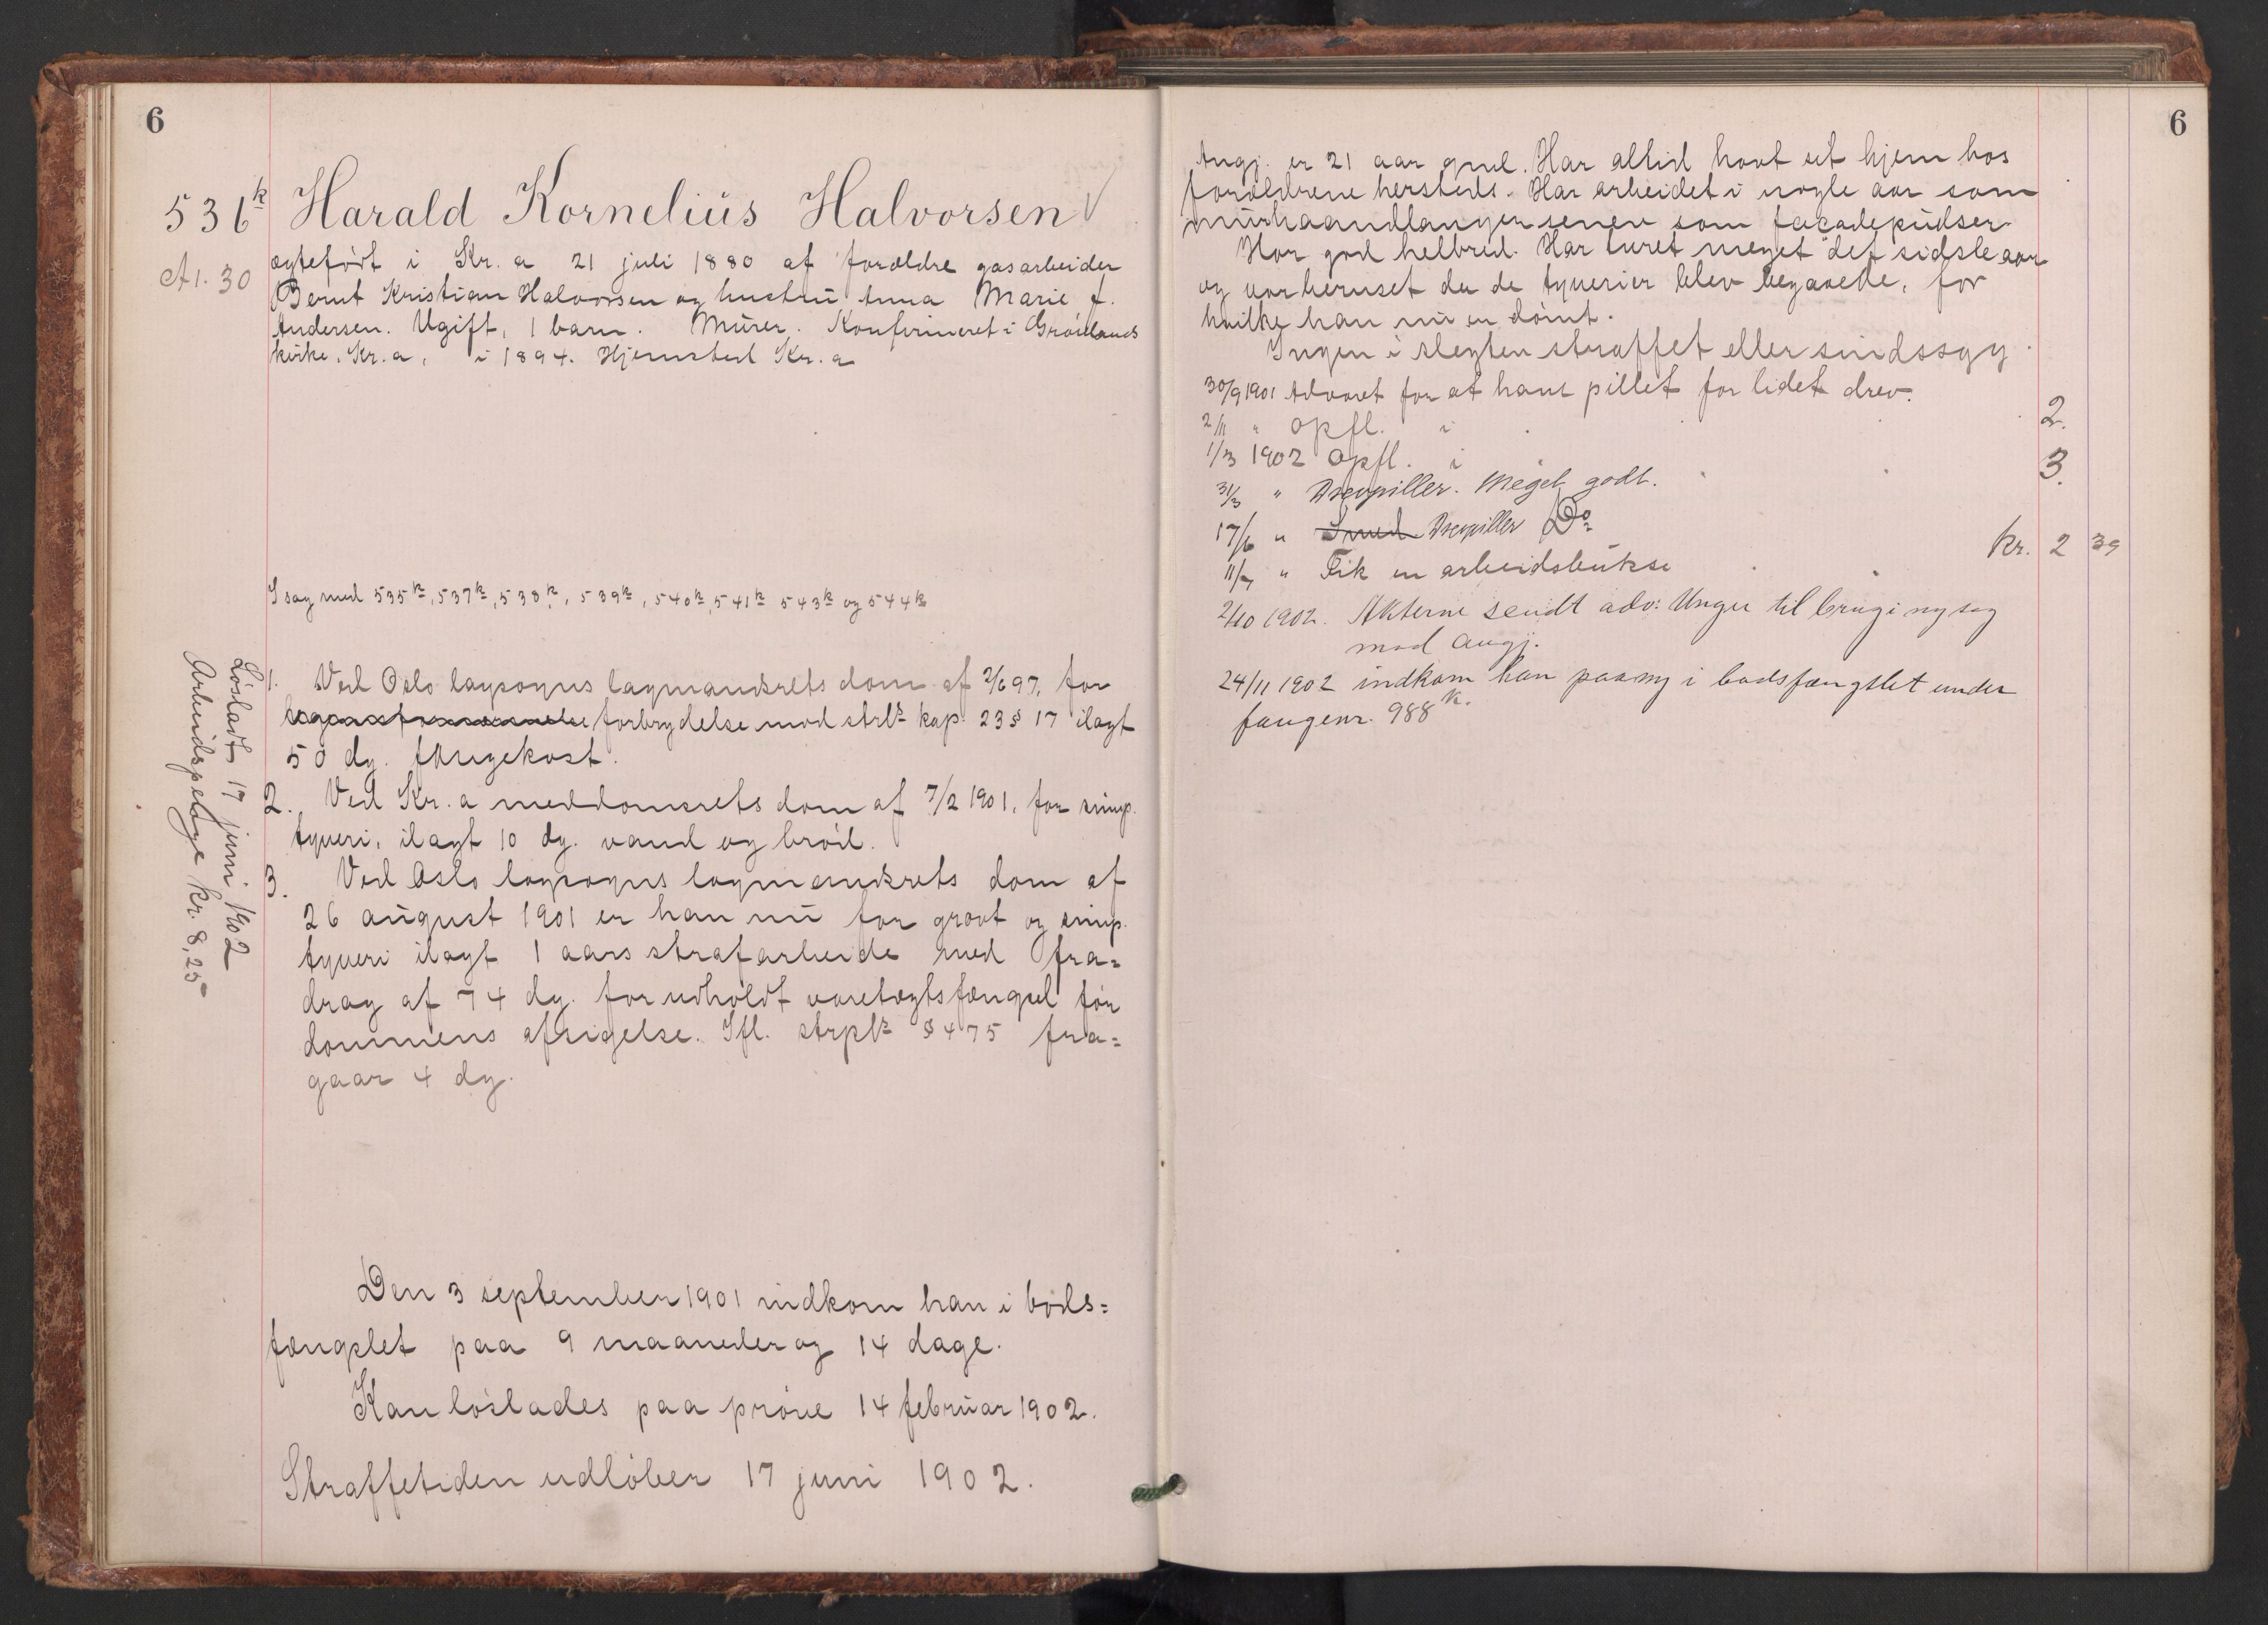 6
536k Harald Kornelius Halvorsen V
A1.30
egtefødt i Kr.a 21 juli 1880 af forældre gasarbeider
Bernt Kristian Halvorsen og hustru Anna Marie f.
Andersen. Ugift, 1 barn. Murer. Konfirmeret i Grønlands
kirke, Kr.a, i 1894. Hjemsted Kr.a
I sag med 535k, 537k, 538k, 539k, 540k, 541k 543k og 544k
1. Ved Oslo lagsogns lagmandsrets dom af 2/6 97, for
forbrydelse mod strl. kap. 23 § 17 ilagt
50 dg. fangekost.
2. Ved Kr.a meddomsrets dom af 7/2 1901, for simp.
tyveri, ilagt 10 dg. vand og brød.
3. Ved Oslo lagsogns lagmandsrets dom af
26 august 1901 er han nu for grovt og simp.
tyveri ilagt 1 aars strafarbeide med fra=
drag af 74 dg. for udholdt varetægtsfængsel før
dommens afsigelse. Ifl. strpl. § 475 fra=
gaar 4 dg.
Løsladt 17 juni 1902
Arbeidspenge kr. 8,25
Den 3 september 1901 indkom han i bods=
fængslet paa 9 maaneder og 14 dage.
Kan løslades paa prøve 14 februar 1902.
Straffetiden udløber 17 juni 1902.
6
Angj. er 21 aar gml. Har altid havt sit hjem hos
forældrene hersteds. Har arbeidet i nogle aar som
murhaandlanger senere som facadepudser.
Har god helbred. Har turet meget det sidste aar
og var beruset da de tyverier blev begaaede, for
hvilke han nu er dømt.
Ingen i slegten straffet eller sindssyg.
30/9 1901 Advaret for at have pillet for lidet drev.
2/11 " opfl. i 2.
1/3 1902 opfl. i 3.
31/3 " Drevpiller. Meget godt.
17/6 " Smed Drevpiller Do
11/7 " Fik en arbeidsbukse kr. 2 39
2/10 1902. Akterne sendt adv: Unger til brug i ny sag
mod angj.
24/11 1902 indkom han paany i bodsfængslet under
fangenr. 988 k.